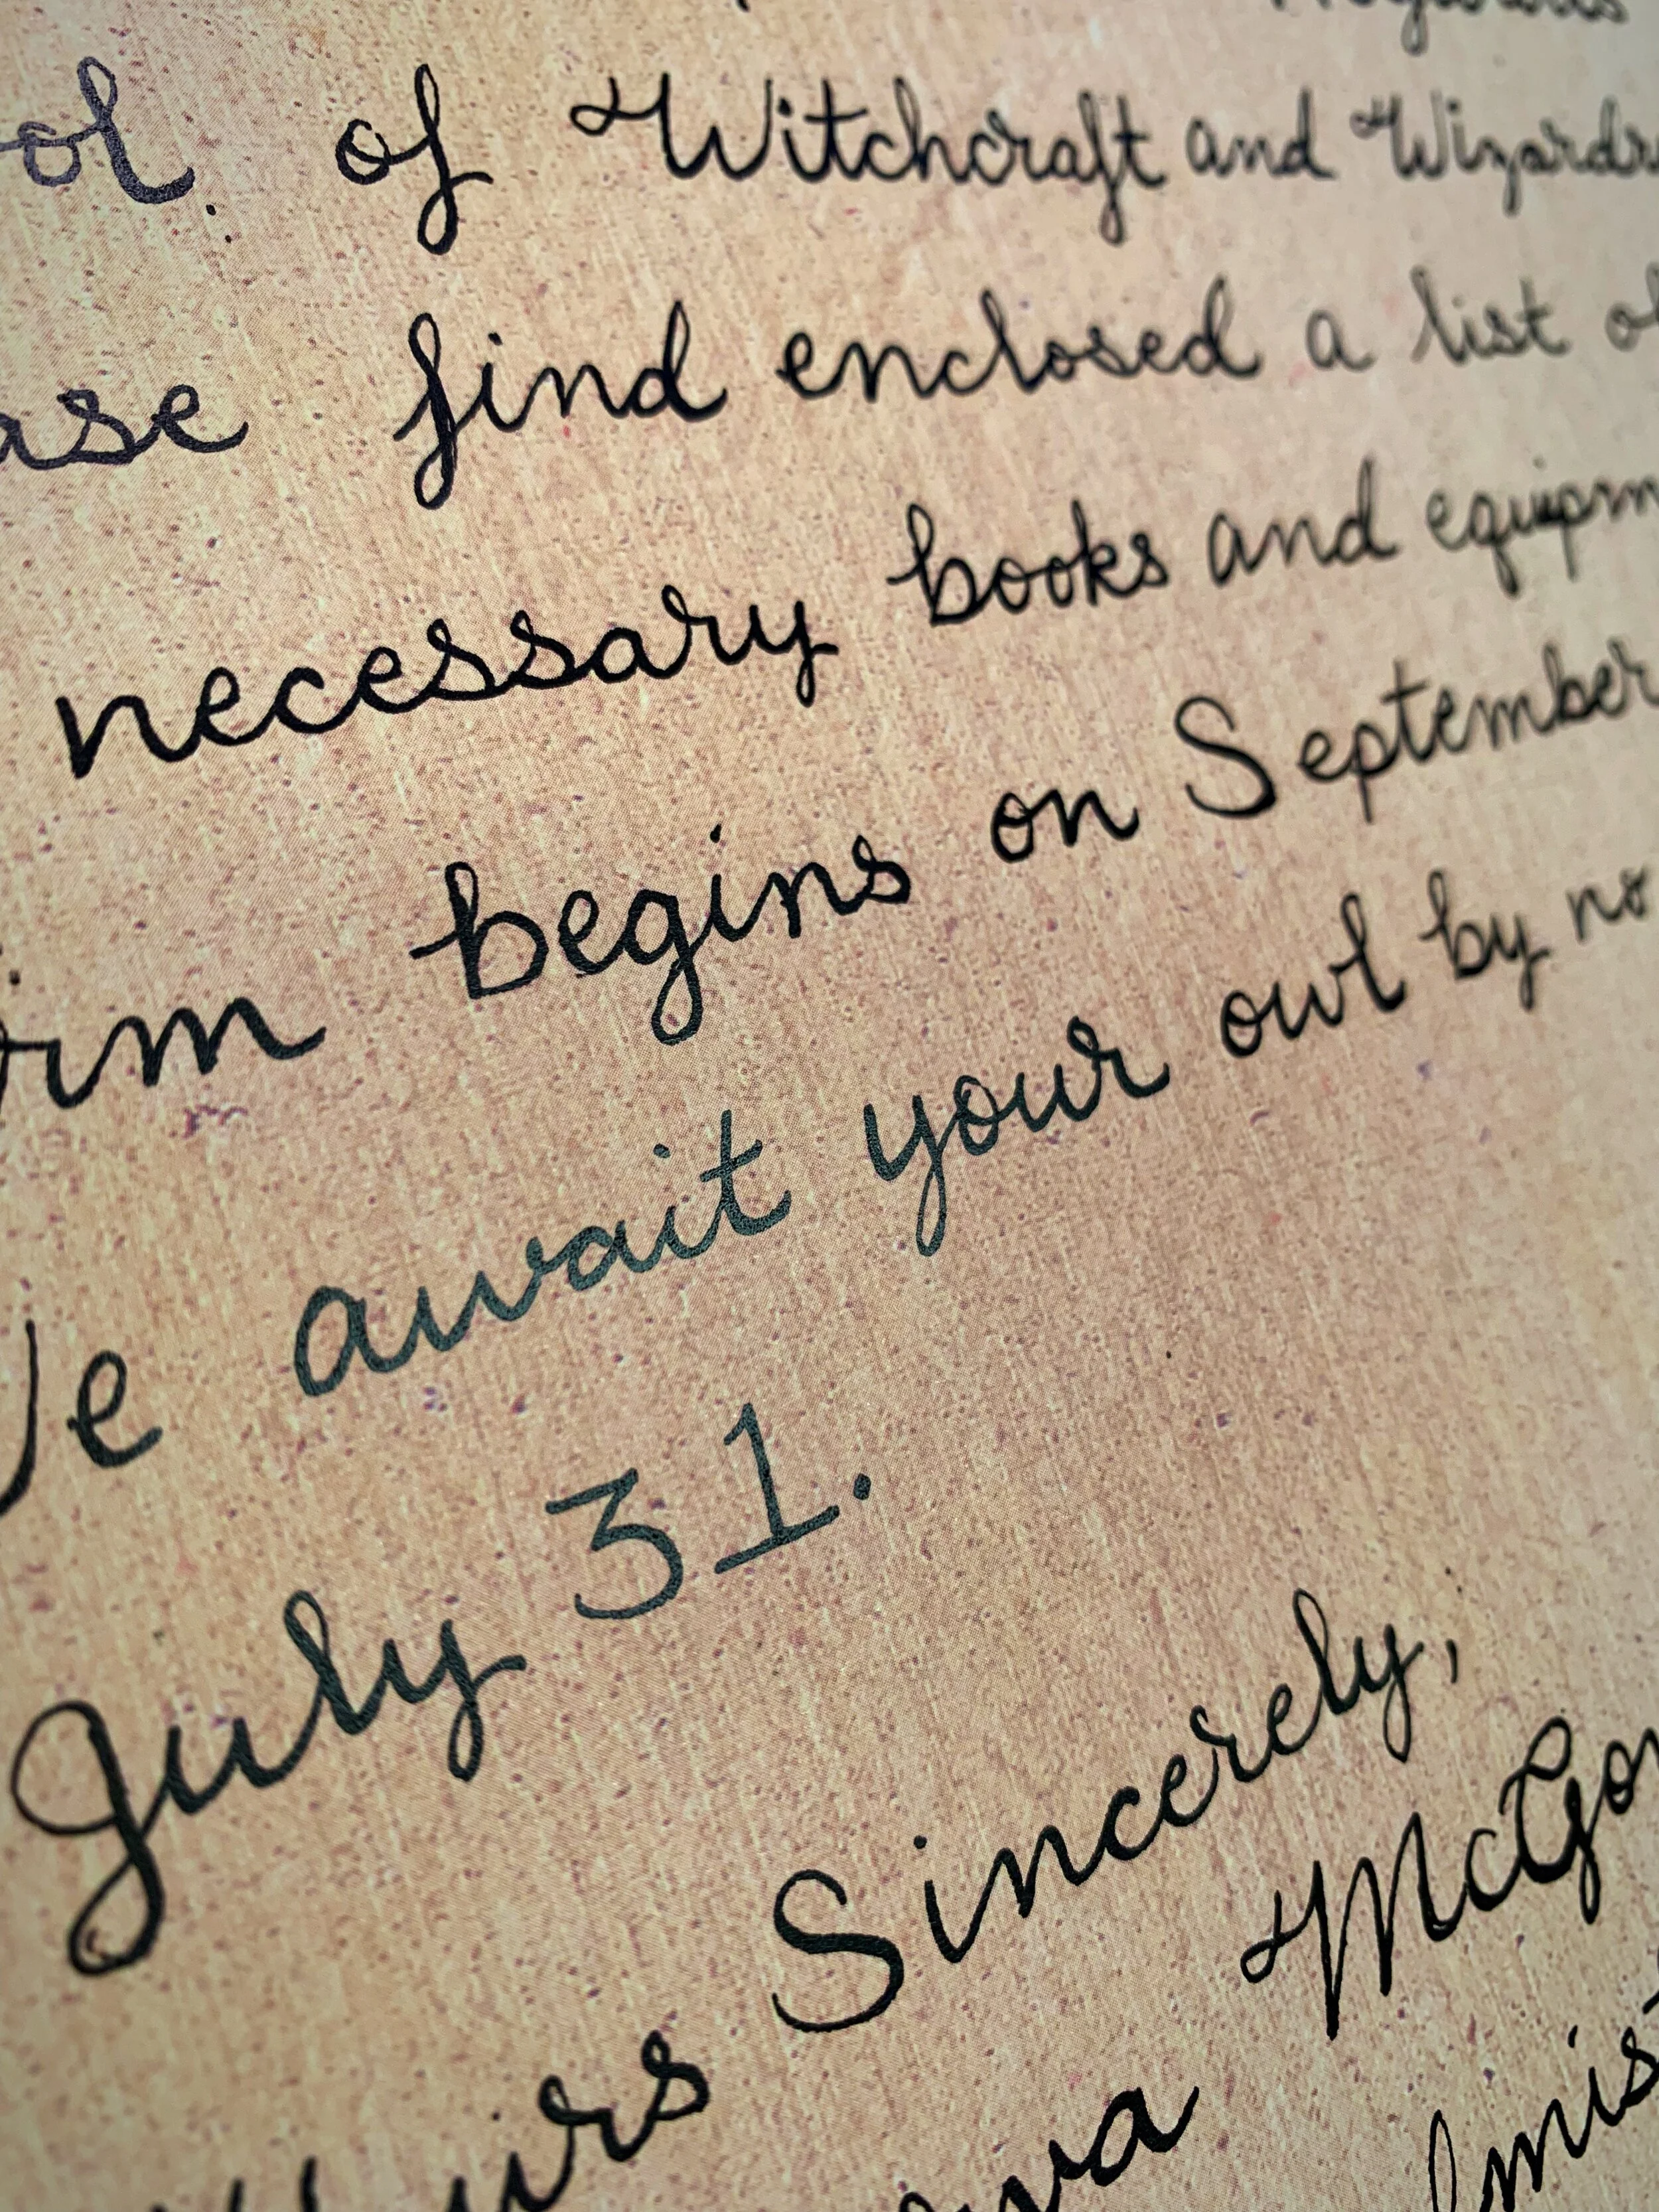 ol of Witchcraft and Wizardr
ase find enclosed a list of
necessary books and equipm
rm begins on September
We await your owl by no
July 31.
urs Sincerely,
va McGon